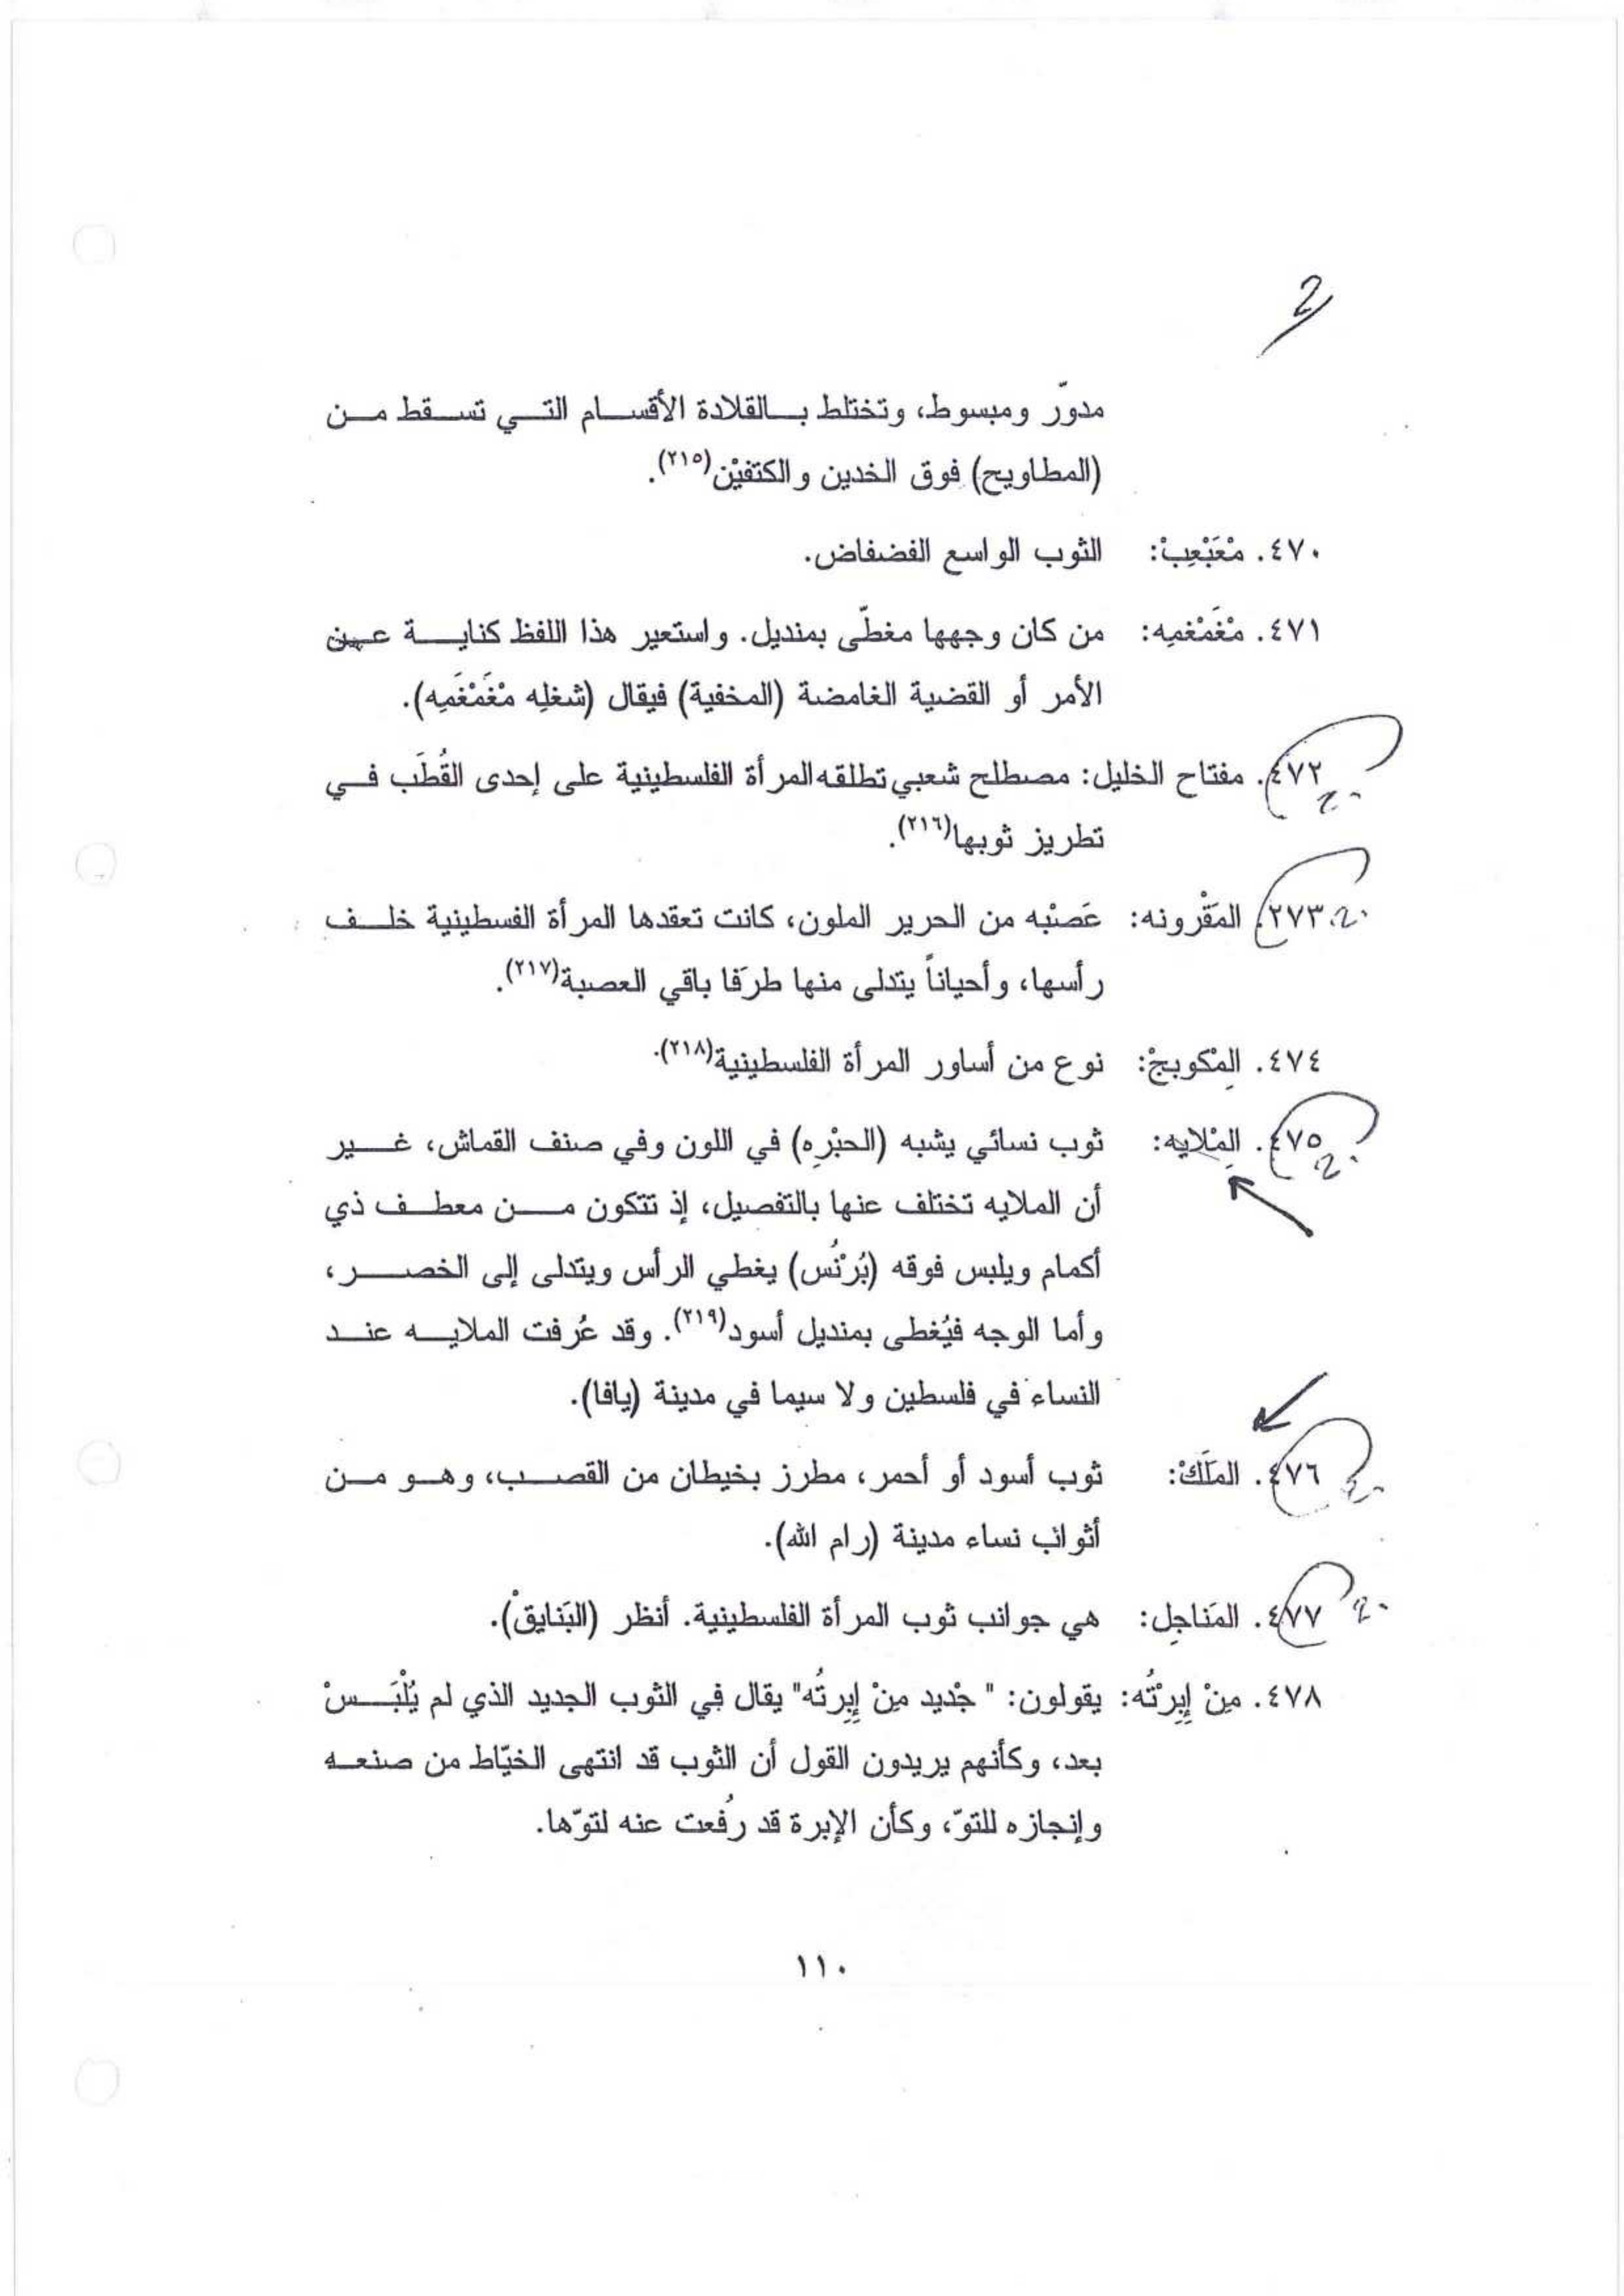 2
مدوّر ومبسوط، وتختلط بالقلادة الأقسام التي تسقط من
(المطاويح) فوق الخدين والكتفيْن(٢١٥).
٤٧٠. مْعَبْعِبْ: الثوب الواسع الفضفاض.
٤٧١. مْغَمْغمِه: من كان وجهها مغطّى بمنديل. واستعير هذا اللفظ كناية عن
الأمر أو القضية الغامضة (المخفية) فيقال (شغلِه مْغَمْغَمِه).
٤٧٢. مفتاح الخليل: مصطلح شعبي تطلقه المرأة الفلسطينية على إحدى القُطَب في
تطريز ثوبها(٢١٦).
٢٧٣. المَقْرونه: عَصْبْه من الحرير الملون، كانت تعقدها المرأة الفسطينية خلف
رأسها، وأحياناً يتدلى منها طرَفا باقي العصبة(٢١٧).
٤٧٤. المِْكوبجْ: نوع من أساور المرأة الفلسطينية(٢١٨).
٤٧٥. المِْلايه: ثوب نسائي يشبه (الحبْرِه) في اللون وفي صنف القماش، غير
أن الملايه تختلف عنها بالتفصيل، إذ تتكون من معطف ذي
أكمام ويلبس فوقه (بُرْنُس) يغطي الرأس ويتدلى إلى الخصر،
وأما الوجه فيُغطى بمنديل أسود(٢١٩). وقد عُرفت الملايه عند
النساء في فلسطين ولا سيما في مدينة (يافا).
٤٧٦. الملَكْ: ثوب أسود أو أحمر، مطرز بخيطان من القصب، وهو من
أثواب نساء مدينة (رام الله).
٤٧٧. المَناجِل: هي جوانب ثوب المرأة الفلسطينية. أنظر (البَنايقْ).
٤٧٨. مِنْ إِبِرْتُه: يقولون: " جْديد مِنْ إِبِرتُه" يقال في الثوب الجديد الذي لم يُلْبَسْ
بعد، وكأنهم يريدون القول أن الثوب قد انتهى الخيّاط من صنعه
وإنجازه للتوّ، وكأن الإبرة قد رُفعت عنه لتوّها.
١١٠